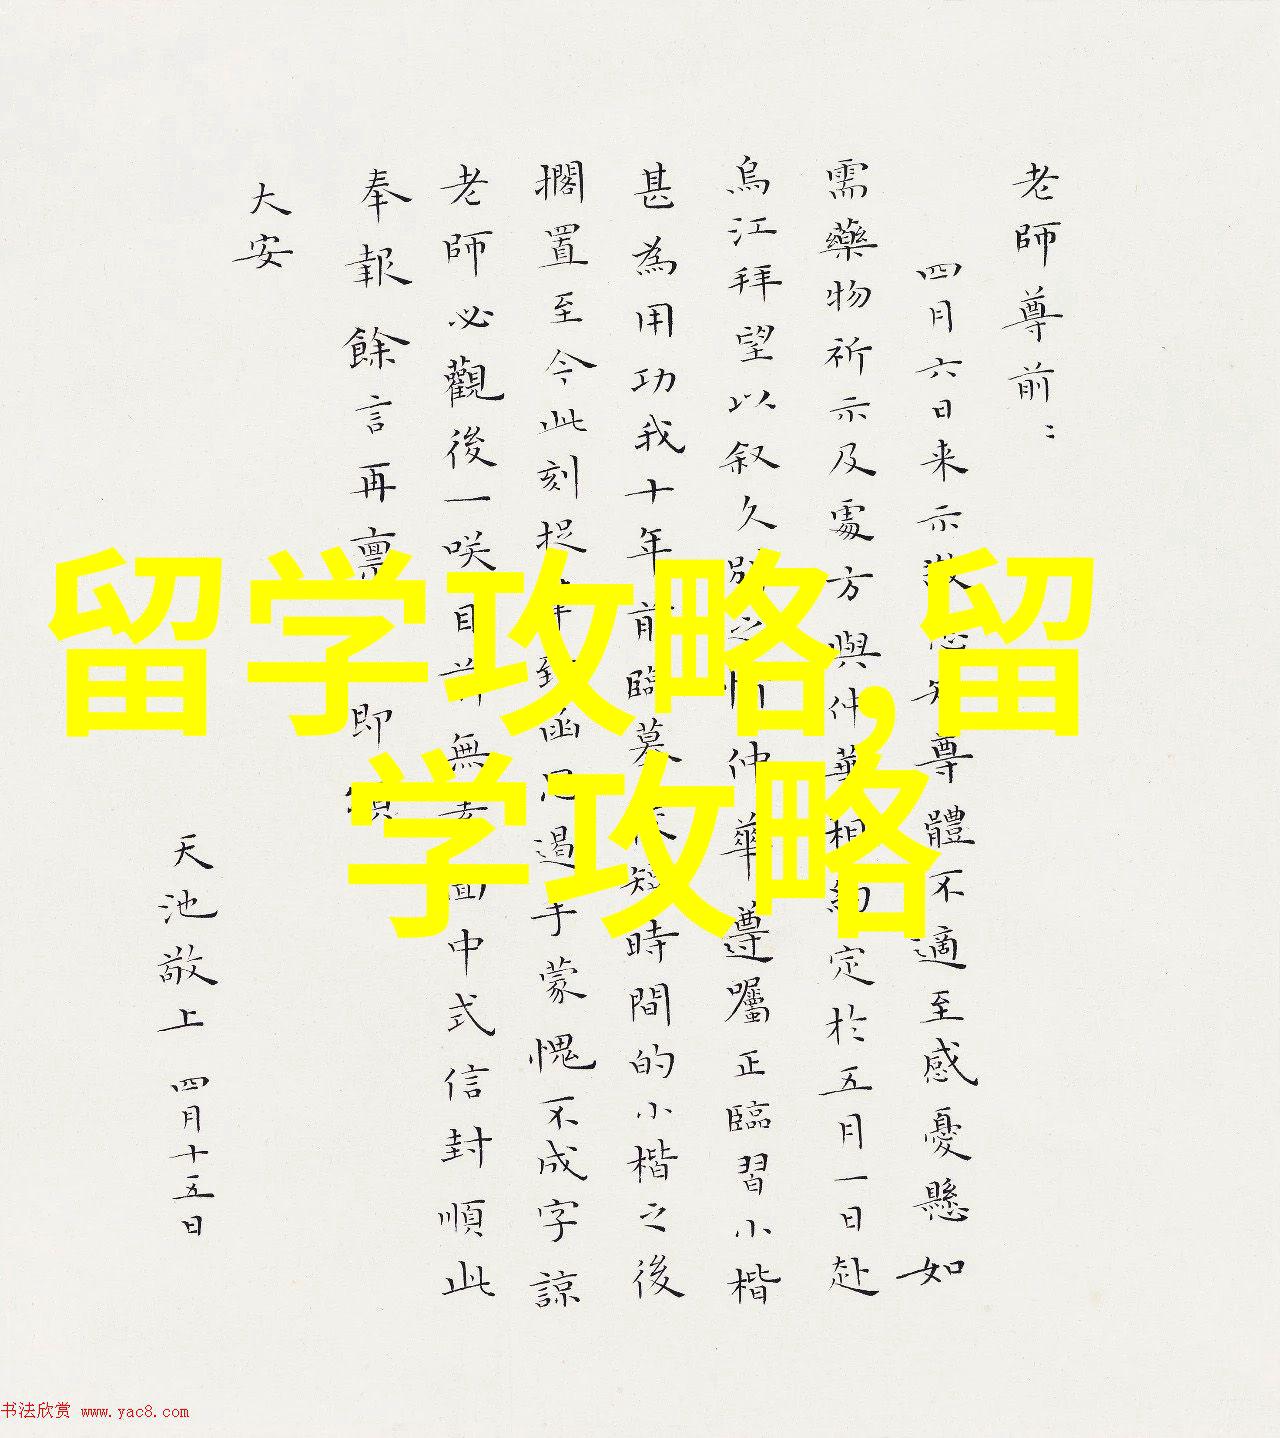 老師尊前：
四月六日来示尊體不適至感憂懸如
需藥物祈示及處方與仲華相約定於五月一日赴
烏江拜望以叙久別之情仲華遵囑正臨習小楷
甚為用功我十年前臨摹短時間的小楷之後
擱置至今此刻捉函手蒙愧不成字諒
老師必觀後一咲目前無面中式信封順此
奉報餘言再稟即頌
大安
天池敬上 四月十五日
留学攻略,留
学攻略
书法欣赏 www.yac8.com